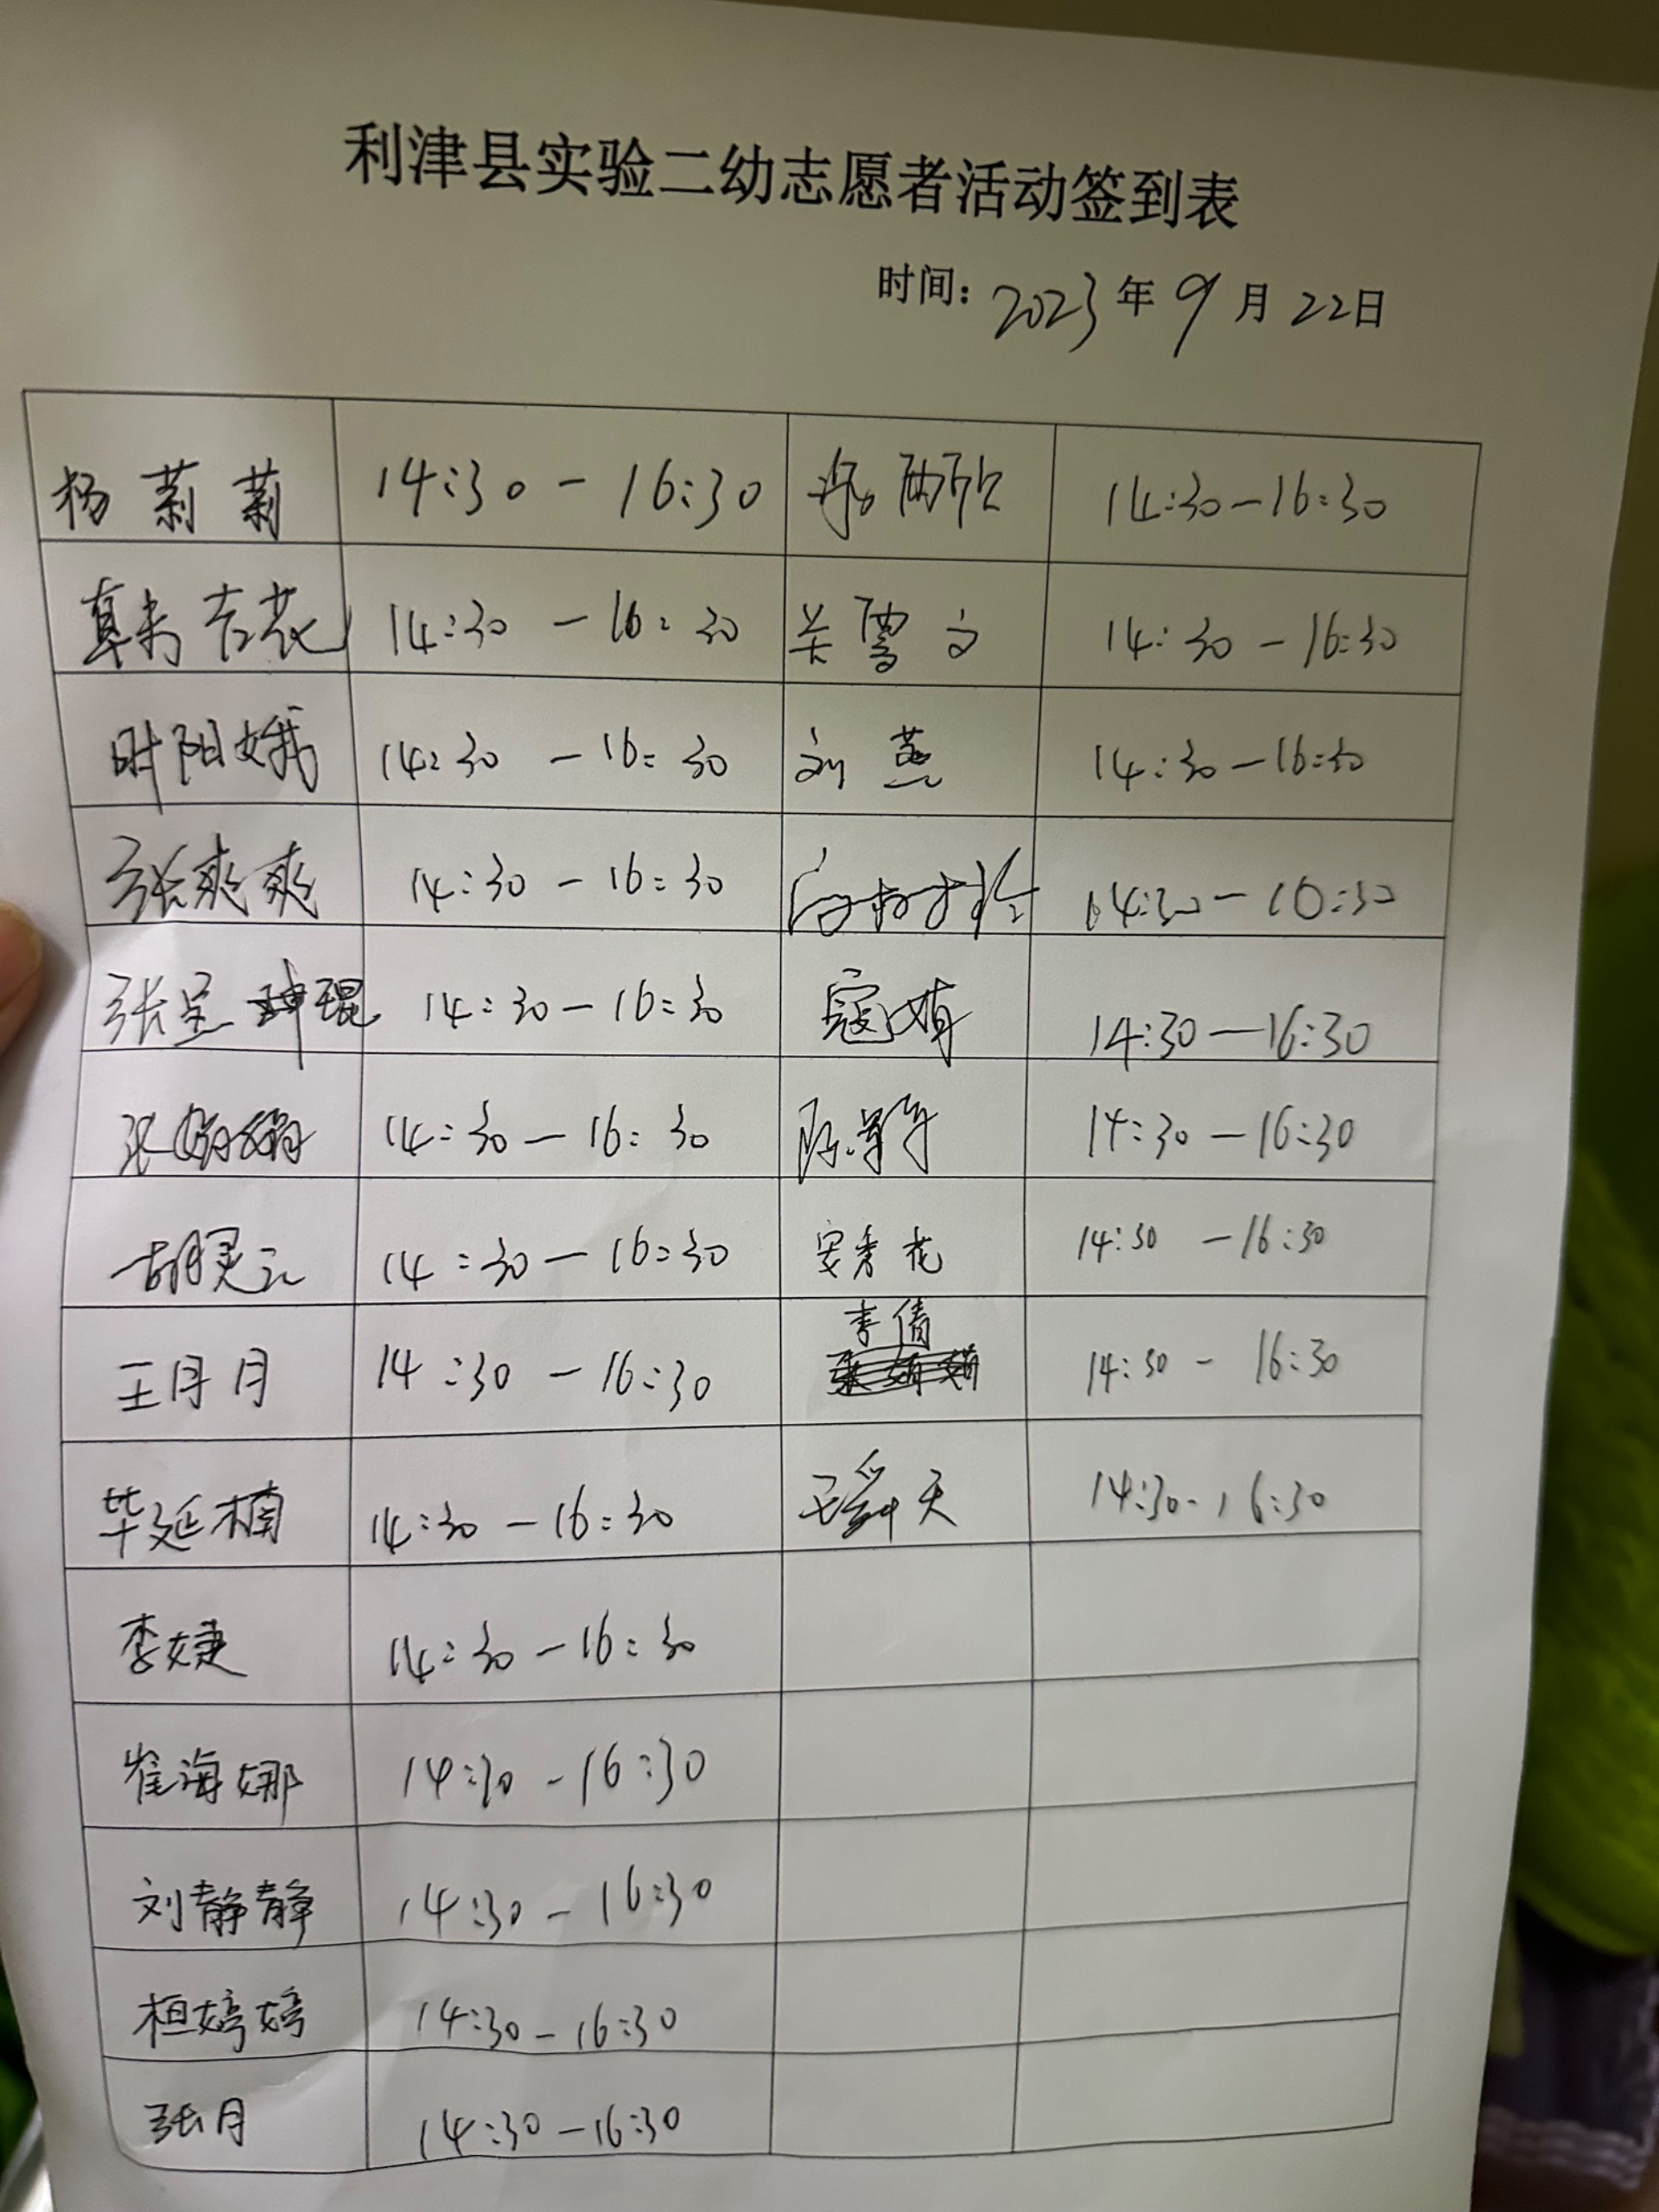 利津县实验二幼志愿者活动签到表
时间：2023年9月22日
杨莉莉 14:30-16:30 14:30-16:30
14:30-16:30 关雪文 14:30-16:30
时阳娥 14:30-16:30 刘燕 14:30-16:30
张爽爽 14:30-16:30 14:30-16:30
张呈琨 14:30-16:30 寇娟 14:30-16:30
张娟娟 14:30-16:30 14:30-16:30
胡灵云 14:30-16:30 安秀花 14:30-16:30
王丹月 14:30-16:30 李倩 14:30-16:30
毕延楠 14:30-16:30 天 14:30-16:30
李婕 14:30-16:30
崔海娜 14:30-16:30
刘静静 14:30-16:30
桓婷婷 14:30-16:30
张月 14:30-16:30